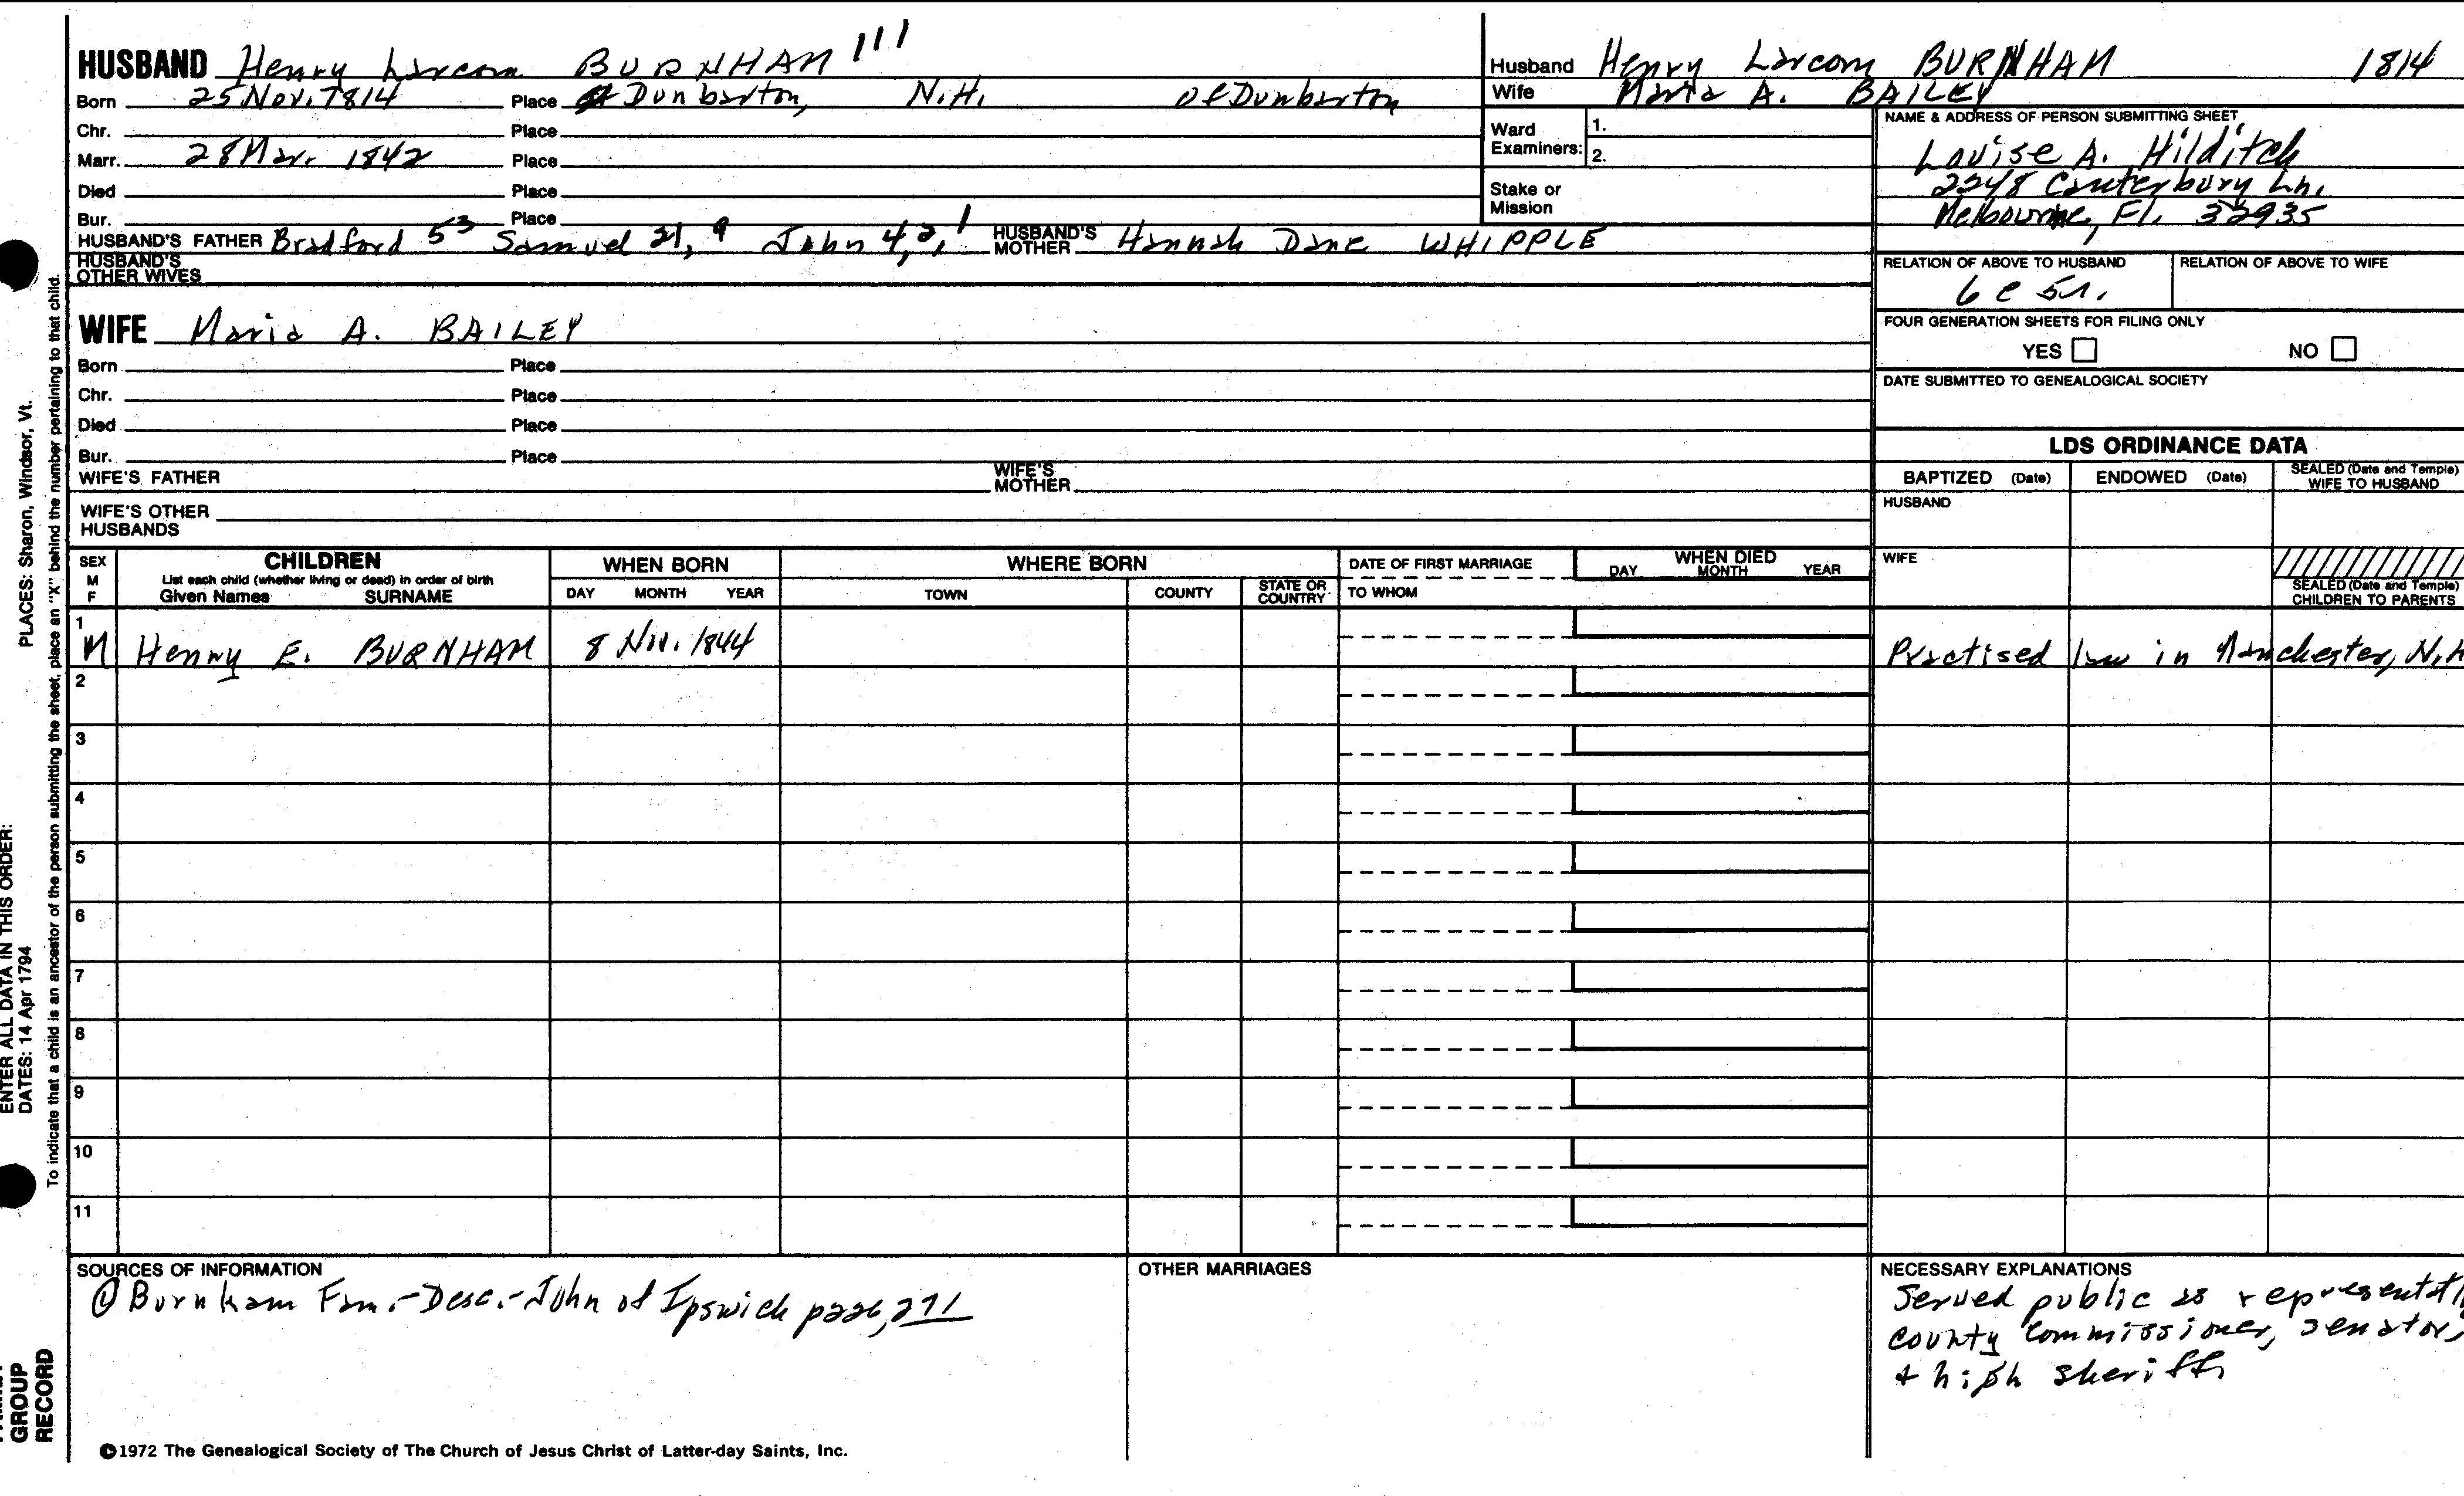 HUSBAND Henry Larcom BURNHAM 111
Born 25 Nov. 1814 Place Dunbarton, N.H. of Dunbarton
Chr. Place
Marr. 28 Mar. 1842 Place
Died Place
Bur. Place
HUSBAND'S FATHER Bradford 53 Samuel 21, 9 John 4, 2, 1 HUSBAND'S MOTHER Hannah Dane WHIPPLE
HUSBAND'S OTHER WIVES
Husband Henry Larcom BURNHAM 1814
Wife Maria A. BAILEY
Ward Examiners: 1.
2.
Stake or Mission
NAME & ADDRESS OF PERSON SUBMITTING SHEET
Louise A. Hilditch
2248 Canterbury Ln.
Melbourne, Fl. 32935
RELATION OF ABOVE TO HUSBAND RELATION OF ABOVE TO WIFE
6 c 5r.
FOUR GENERATION SHEETS FOR FILING ONLY
YES NO
DATE SUBMITTED TO GENEALOGICAL SOCIETY
WIFE Maria A. BAILEY
Born Place
Chr. Place
Died Place
Bur. Place
WIFE'S FATHER WIFE'S MOTHER
WIFE'S OTHER HUSBANDS
LDS ORDINANCE DATA
BAPTIZED (Date) ENDOWED (Date) SEALED (Date and Temple) WIFE TO HUSBAND
HUSBAND
WIFE
SEALED (Date and Temple) CHILDREN TO PARENTS
SEX M F
CHILDREN
List each child (whether living or dead) in order of birth
Given Names SURNAME
WHEN BORN
DAY MONTH YEAR
WHERE BORN
TOWN COUNTY STATE OR COUNTRY
DATE OF FIRST MARRIAGE
TO WHOM
WHEN DIED
DAY MONTH YEAR
1
M Henry E. BURNHAM 8 Nov. 1844 Practised law in Manchester, N.H
2
3
4
5
6
7
8
9
10
11
SOURCES OF INFORMATION
@ Burnham Fam.-Desc.-John of Ipswich page, 271
OTHER MARRIAGES
NECESSARY EXPLANATIONS
Served public as
county commissioner, senator,
+ high sheriff
©1972 The Genealogical Society of The Church of Jesus Christ of Latter-day Saints, Inc.
PLACES: Sharon, Windsor, Vt.
ENTER ALL DATA IN THIS ORDER:
DATES: 14 Apr 1794
To indicate that a child is an ancestor of the person submitting the sheet, place an "X" behind the number pertaining to that child.
GROUP
RECORD